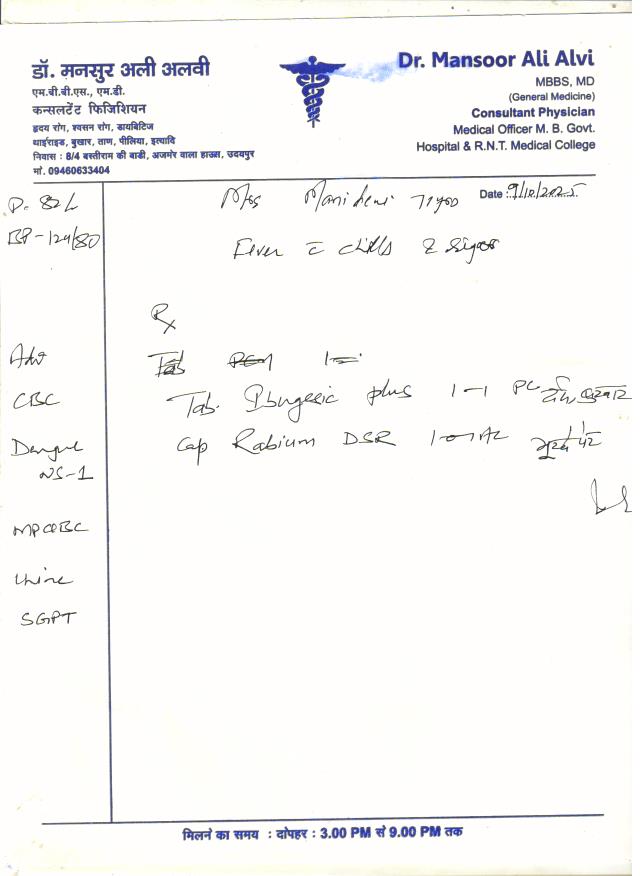 डॉ. मनसुर अली अलवी
एम.बी.बी.एस., एम.डी.
कन्सलटेंट फिजिशियन
हृदय रोग, श्वसन रोग, डायबिटिज
थाईराइड, बुखार, ताण, पीलिया, इत्यादि
निवास : 8/4 बस्तीराम की बाडी, अजमेर वाला हाउस, उदयपुर
मो. 09460633404
Dr. Mansoor Ali Alvi
MBBS, MD
(General Medicine)
Consultant Physician
Medical Officer M. B. Govt.
Hospital & R.N.T. Medical College
Date : 9/10/2025
Mrs
P- 82
BP-124/80
Fever c chills & Rigor
Rx
Adv
CBC
Dengue
NS-1
Urine
SGPT
Tab
Tab. Ibugesic plus 1-1 PC
Cap Rabium DSR 1-0-1 AC
मिलने का समय : दोपहर : 3.00 PM से 9.00 PM तक